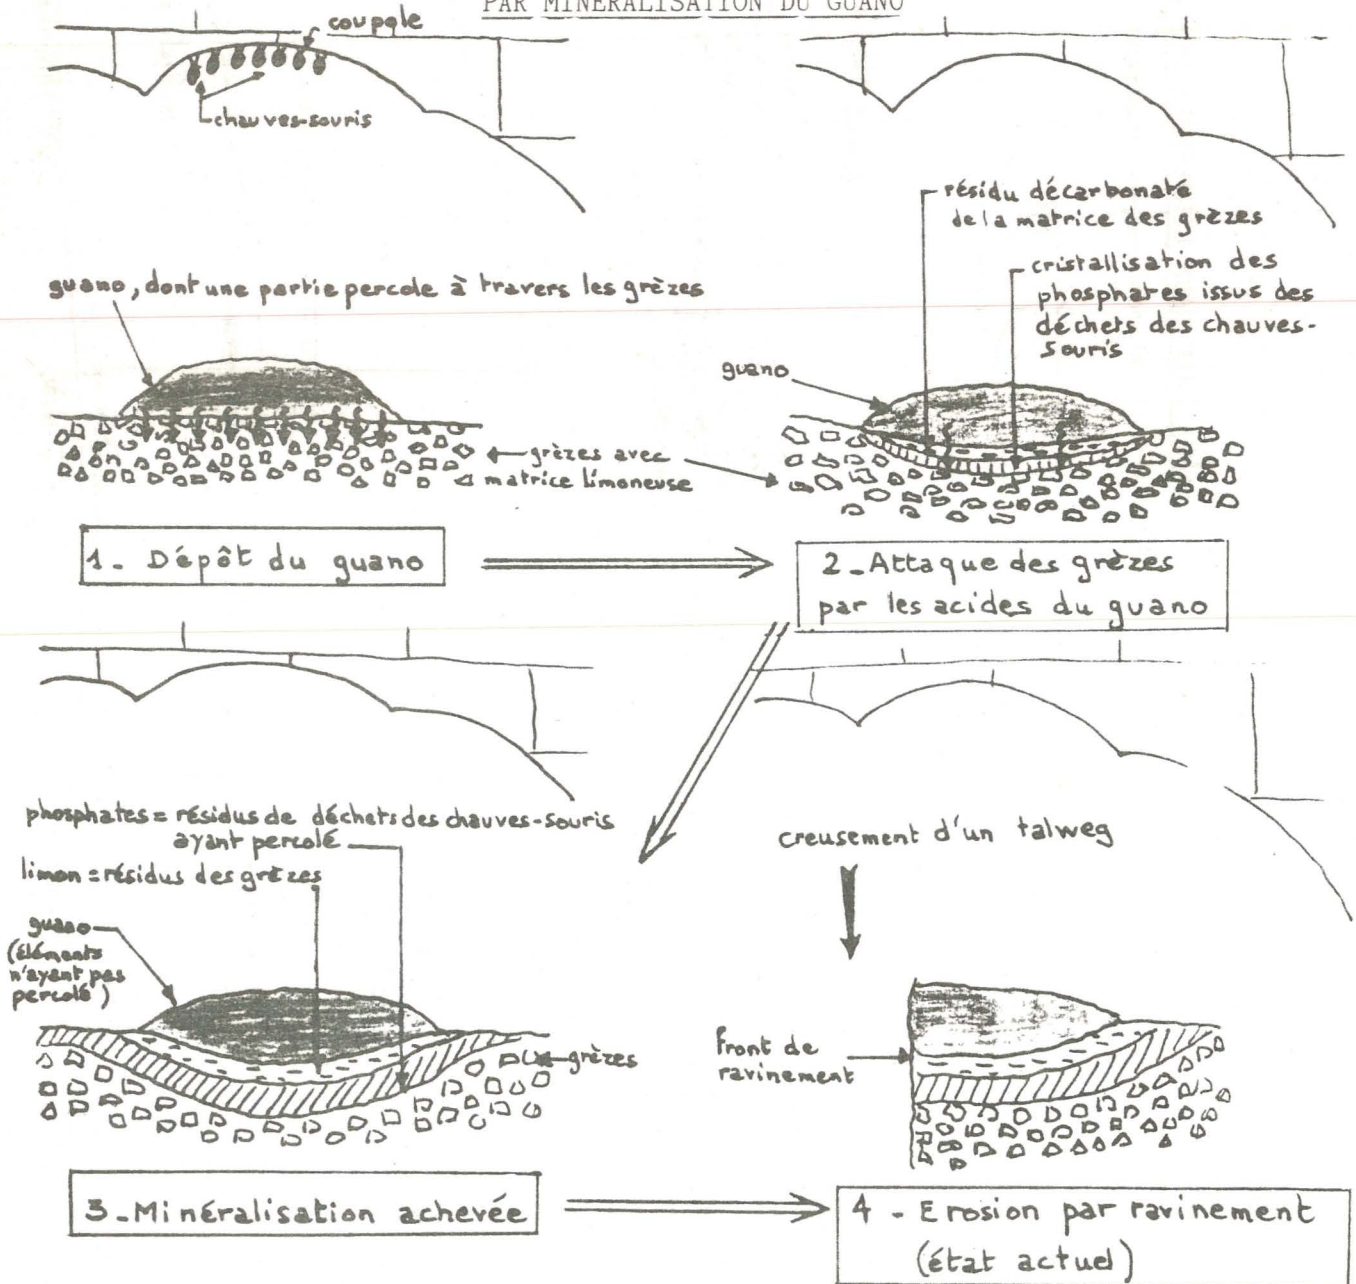 PAR MINERALISATION DU GUANO
coupole
chauves-souris
guano, dont une partie percole à travers les grèzes
grèzes avec
matrice limoneuse
1 - Dépôt du guano
résidu décarbonaté
de la matrice des grèzes
cristallisation des
phosphates issus des
déchets des chauves-
souris
guano
2 - Attaque des grèzes
par les acides du guano
phosphates = résidus de déchets des chauves-souris
ayant percolé
limon = résidus des grèzes
guano
(éléments
n'ayant pas
percolé)
grèzes
3 - Minéralisation achevée
creusement d'un talweg
Front de
ravinement
4 - Erosion par ravinement
(état actuel)